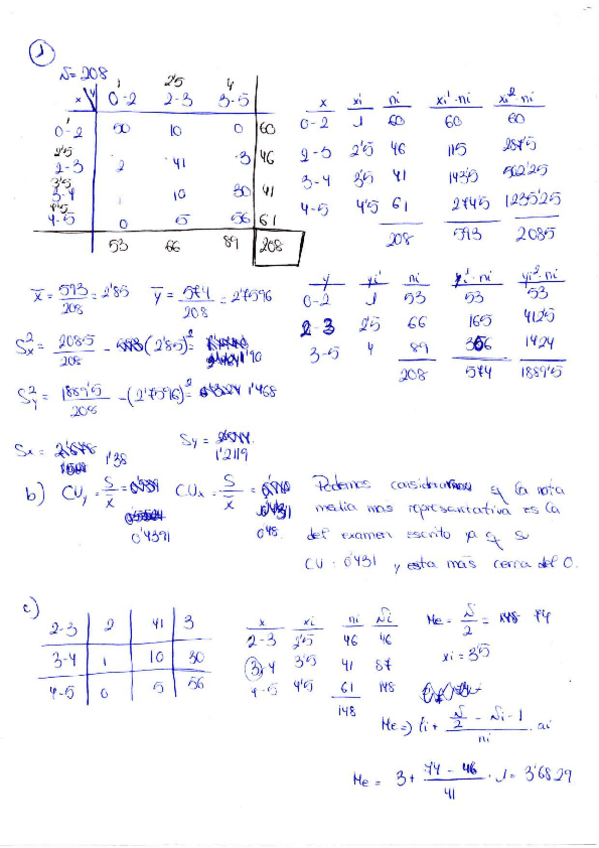 1
N = 208
1 2'5 4
x \ y 0-2 2-3 3-5
1
0-2 50 10 0 60
2'5
2-3 2 41 3 46
3'5
3-4 1 10 30 41
4'5
4-5 0 5 56 61
53 66 89 208
x xi ni xi·ni xi²·ni
0-2 1 60 60 60
2-3 2'5 46 115 287'5
3-4 3'5 41 143'5 502'25
4-5 4'5 61 274'5 1235'25
208 593 2085
x̄ = 593/208 = 2'85 ȳ = 574/208 = 2'7596
y yi ni yi·ni yi²·ni
0-2 1 53 53 53
2-3 2'5 66 165 412'5
3-5 4 89 356 1424
208 574 1889'5
Sx² = 2085/208 - (2'85)² = 1'90
Sy² = 1889'5/208 - (2'7596)² = 1'468
Sx = 1'38 Sy = 1'2119
b) CVy = S/x̄ = 0'4391 CVx = S/x̄ = 0'48
Podemos considerar q la nota
media mas representativa es la
del examen escrito ya q su
CV = 0'431 y esta más cerca del 0.
c)
2-3 2 41 3
3-4 1 10 30
4-5 0 5 56
x xi ni Ni
2-3 2'5 46 46
3-4 3'5 41 87
4-5 4'5 61 148
148
Me = N/2 = 148 74
xi = 3'5
Me => li + (N/2 - Ni-1)/ni · ai
Me = 3 + (74 - 46)/41 · 1 = 3'6829